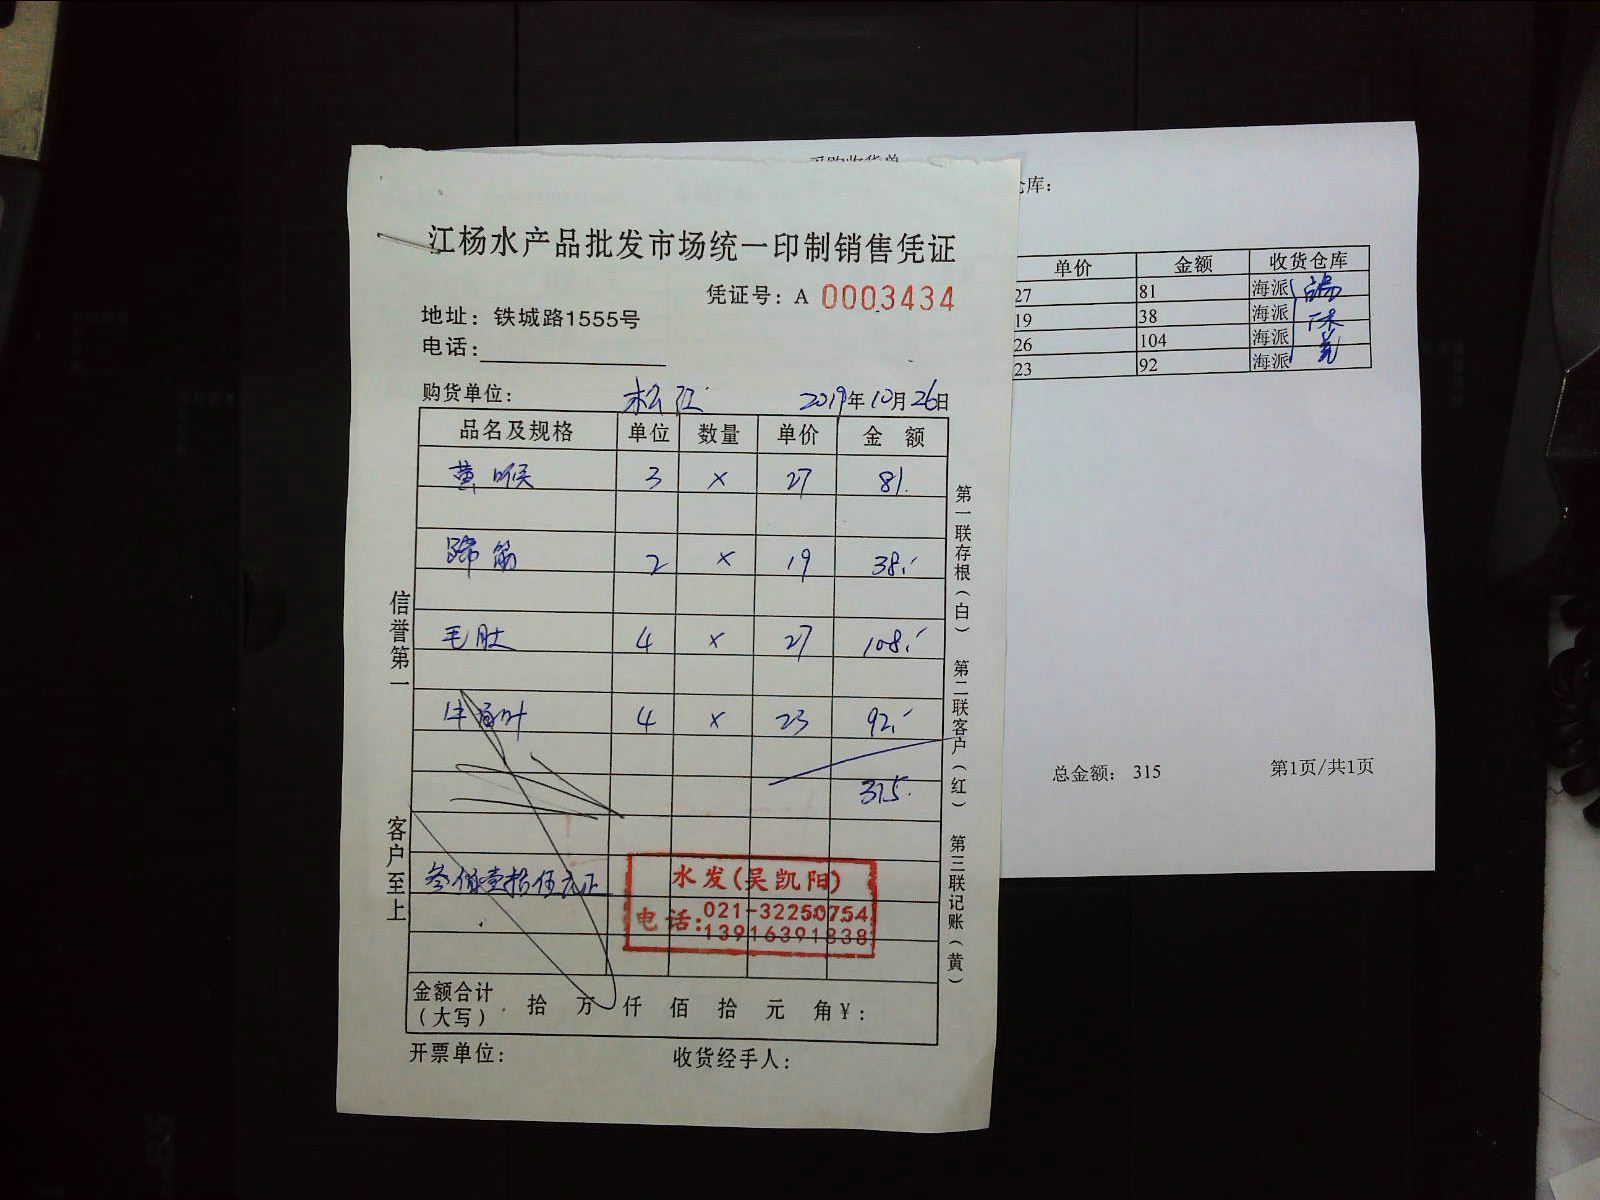 江杨水产品批发市场统一印制销售凭证
凭证号：A 0003434
地址：铁城路1555号
电话：
购货单位： 松江 2019年10月26日
品名及规格 单位 数量 单价 金 额
黄喉 3 × 27 81.
蹄筋 2 × 19 38.
毛肚 4 × 27 108.
牛百叶 4 × 23 92.
315.
叁佰壹拾伍元正
水发(吴凯阳)
电话:021-32250754
13916391838
金额合计（大写） 拾 万 仟 佰 拾 元 角￥：
开票单位： 收货经手人：
信誉第一
客户至上
第一联存根（白） 第二联客户（红） 第三联记账（黄）
采购收货单
仓库：
单价 金额 收货仓库
27 81 海派
19 38 海派
26 104 海派
23 92 海派
总金额： 315 第1页/共1页